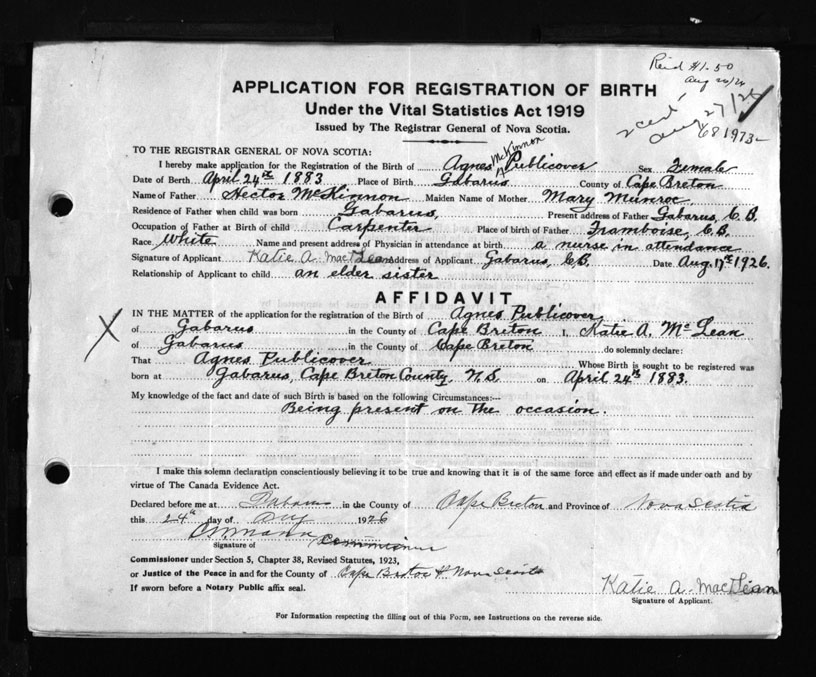 Reid $1.50
Aug 20/26
2 cert
Aug 27/26
681973-
APPLICATION FOR REGISTRATION OF BIRTH
Under the Vital Statistics Act 1919
Issued by The Registrar General of Nova Scotia.
TO THE REGISTRAR GENERAL OF NOVA SCOTIA:
I hereby make application for the Registration of the Birth of Agnes McKinnon Publicover Sex Female
Date of Birth April 24th 1883 Place of Birth Gabarus County of Cape Breton
Name of Father Hector McKinnon Maiden Name of Mother Mary Munroe
Residence of Father when child was born Gabarus, Present address of Father Gabarus, C.B.
Occupation of Father at Birth of child Carpenter Place of birth of Father Framboise, C.B.
Race White Name and present address of Physician in attendance at birth a nurse in attendance
Signature of Applicant Katie A. MacLean Address of Applicant Gabarus, C.B. Date Aug. 17th 1926.
Relationship of Applicant to child an elder sister
AFFIDAVIT
IN THE MATTER of the application for the registration of the Birth of Agnes Publicover,
of Gabarus in the County of Cape Breton I, Katie A. McLean
of Gabarus in the County of Cape Breton do solemnly declare:
That Agnes Publicover Whose Birth is sought to be registered was
born at Gabarus, Cape Breton County, N.S. on April 24th 1883.
My knowledge of the fact and date of such Birth is based on the following Circumstances:—
Being present on the occasion.
I make this solemn declaration conscientiously believing it to be true and knowing that it is of the same force and effect as if made under oath and by
virtue of The Canada Evidence Act.
Declared before me at Gabarus in the County of Cape Breton and Province of Nova Scotia
this 24th day of Aug 1926
Signature of Commissioner
Commissioner under Section 5, Chapter 38, Revised Statutes, 1923,
or Justice of the Peace in and for the County of Cape Breton & Nova Scotia
If sworn before a Notary Public affix seal.
Katie A. MacLean
Signature of Applicant.
For Information respecting the filling out of this Form, see Instructions on the reverse side.